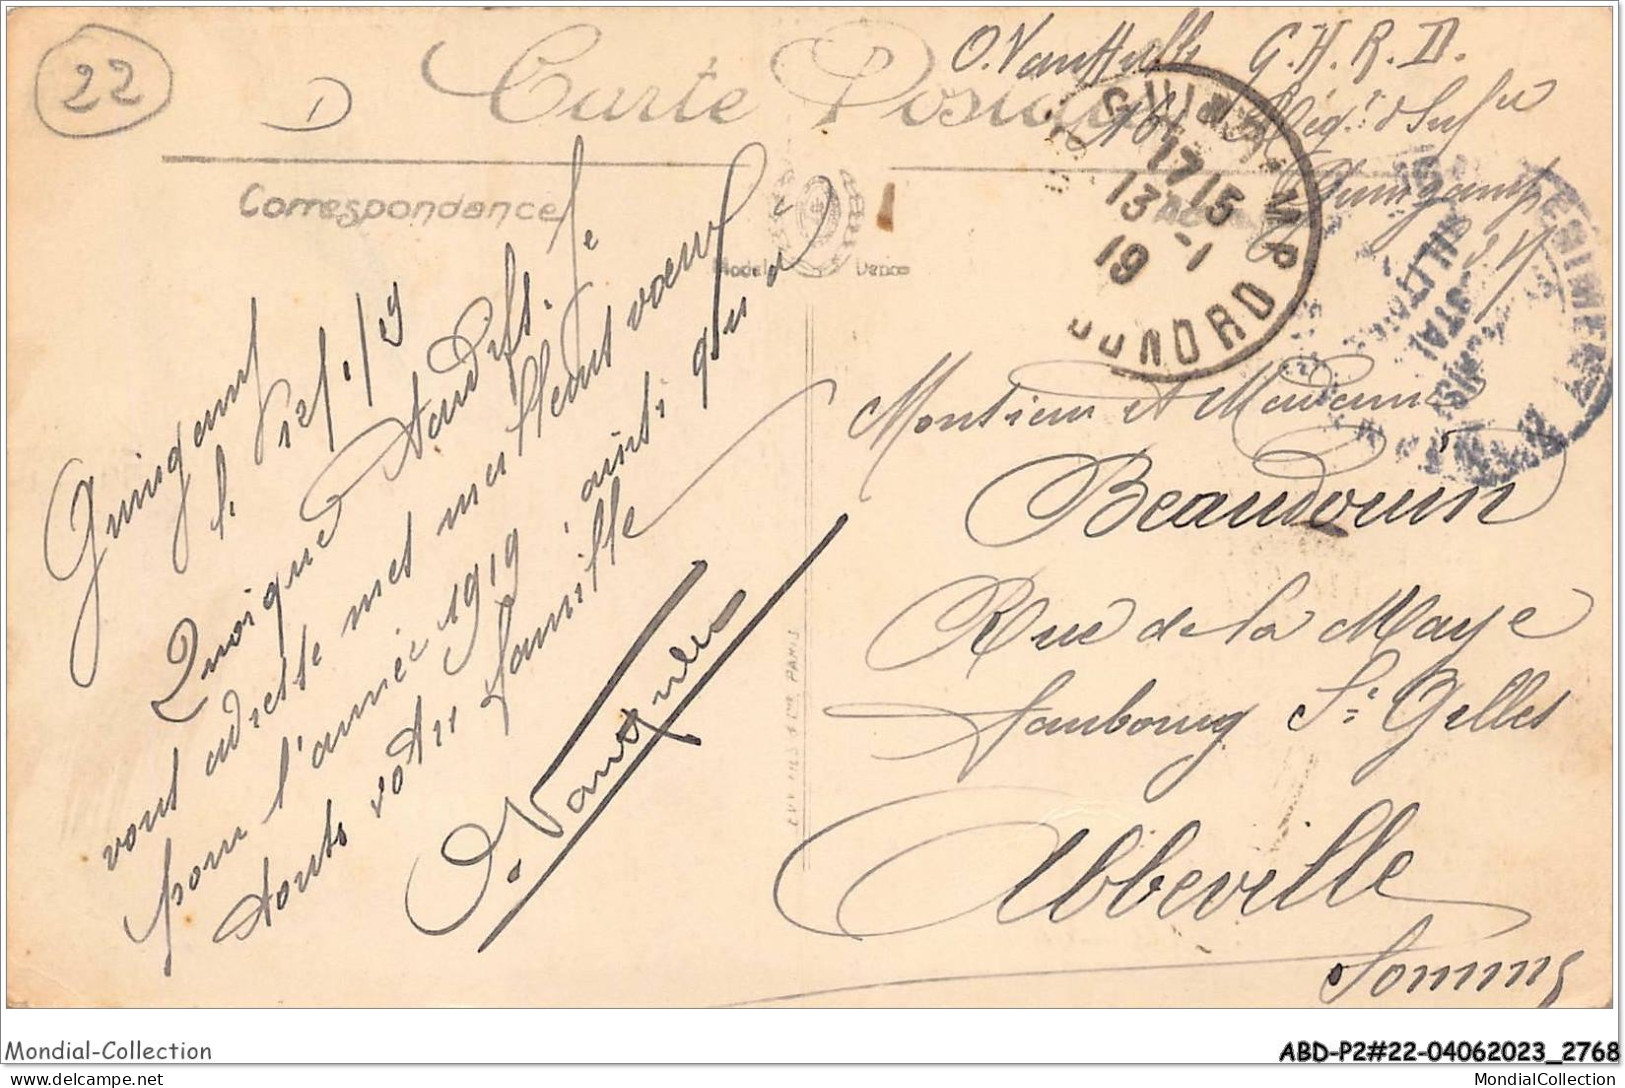 22
D
Carte Postale
O. Vanhulle G.H.R.D.
Rég.t d'Inf.ie
Guingamp
Correspondance
Modèle Déposé
17 15
13 - 1
19
DU NORD
MILITAIRE
Guingamp
le 12/1/19
Quoique tardifs. je
vous adresse mes meilleurs vœux
pour l'année 1919, ainsi qu'à
toute votre famille
O. Vanhulle
Monsieur et Madame
Beaudouin
Rue de la Maye
Faubourg St Gilles
Abbeville
Somme
Mondial-Collection
ABD-P2#22-04062023_2768
delcampe.net
MondialCollection